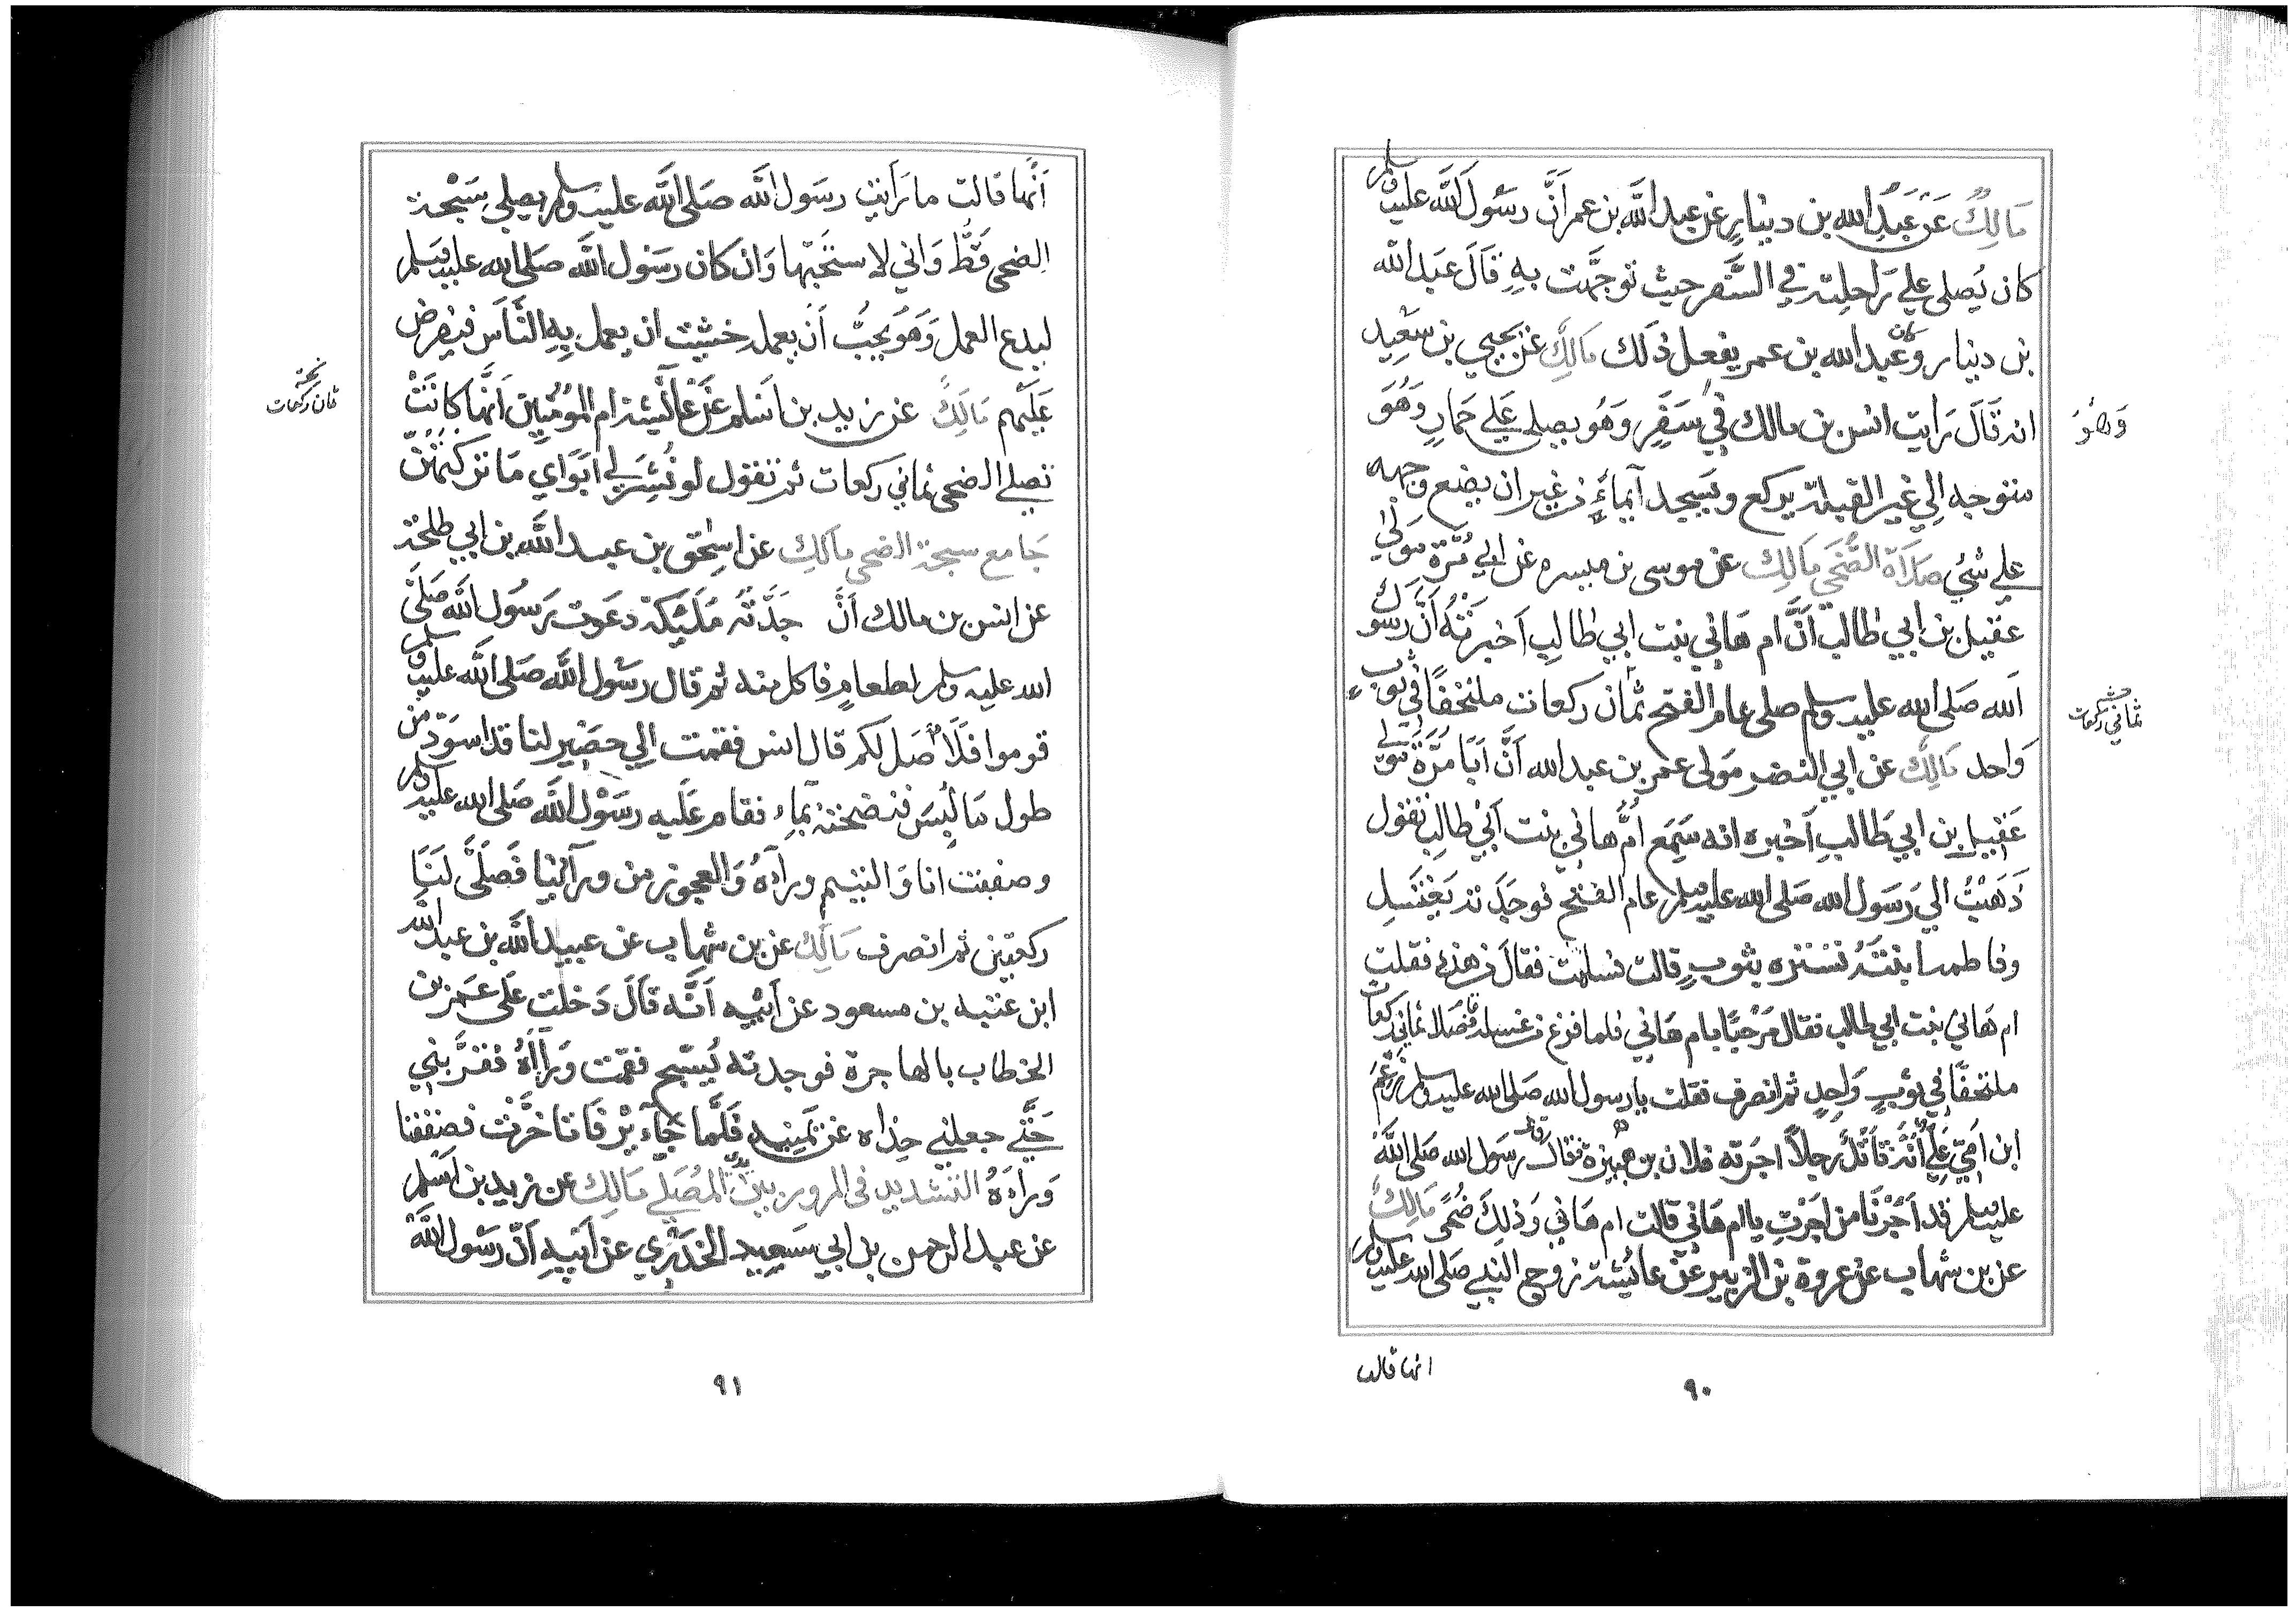 مَالِكٌ عَنْ عَبْدِ الله بن دينارٍ عن عبد الله بن عمر أَنَّ رسُول الله صلى الله عليه وسلم
كان يُصلي علي رَاحلِته في السَّفر حيث توجَّهت بهِ قَالَ عَبد الله
بن دينار وكان عبد الله بن عمر يفعل ذلك مَالِكٌ عَن يحيي بن سَعِيد
انه قَالَ رَايت انس بن مالك في سَفَرٍ وَهُو يصلي عَلي حمارٍ وَهُوَ
وَهُوَ
متوجه الي غير القبلة يركع ويَسجد آيماءً من غير ان يضع وجهه
علي شئٍ صلاة الضُّحَي مَالِك عن موسى بن ميسره عن ابي مُرّة مَولي
عقيل بن ابي طالب أَنَّ ام هَاني بنت ابي طالِب اَخبرتهُ أَنَّ رسُول
الله صَلى الله عليه وسلم صلى عام الفتح ثمان ركعات ملتحفًا في ثوب
ثماني ركعات
وَاحد مَالِكٌ عن ابي النضر مَولى عمر بن عبد الله أَنَّ اَبَا مُرَّة مَولي
عَقيل بن ابي طَالبٍ اَخبره انه سَمِع أمَّ هاني بنت اَبي طالِب تقول
ذَهَبْتُ الي رَسُول الله صَلى الله عليه وسلم عام الفتح فوجَدَته يَغتَسِل
وفاطمه ابنَته تستره بثوبٍ قالت فسلمت فقال من هذه فقلت
ام هَاني بنت ابي طالب فقال مَرْحبًا بام هَاني فلما فرغ من غسله قام فصلا ثماني ركعات
ملتحفًا في ثوبٍ وَاحِدٍ ثم انصرف فقلت يا رسول الله صَلى الله عليه وسلم زَعَمَ
ابن اُمّي عَليٌّ اَنَّهُ قَاتلٌ رجلاً اجَرته فلان بن هبيرة فقال رسُول الله صَلى اللهُ
عليه وسلم قد اَجَرْنَا من اجَرْتِ يا ام هَاني قالت ام هَاني وَذلِكَ ضُحًى مَالِكٌ
عن بن شهاب عن عروة بن الزبير عَن عائشة زوج النبي صَلى الله عليه وسلم
انها قالت
٩٠
اَنَّها قالت ما رَاَيت رسُول الله صَلى اللَّه عليه وسلم يصلي سَبْحة
الضحى قَطُّ وَاني لاستَحبّها وَان كان رَسُول اللَّه صَلى الله عليه وسلم
ليدع العمل وَهُوَ يحِبُّ اَنْ يعمله خشية ان يعمل بهِ النَّاس فيفرض
عَلَيهم مَالِكٌ عن زيد بن اَسْلم عَنْ عَآئشة ام المُؤمنين اَنَّها كانَتْ
ثمان ركعات
تصلي الضحى ثماني ركعات ثم تقول لو نُشِرَ لي اَبَوَاي مَا تركتهنّ
جَامع سبحة الضحى مالِك عن اسْحٰق بن عبد اللَّه بن ابي طلحة
عن انس بن مالك اَنَّ جَدَّتَهُ مُلَيْكَة دعَوت رَسُول الله صَلَّى
الله عليه وسلم لطعامٍ فاكل منه ثم قال رسُول الله صَلى الله عليه وسلم
قوموا فَلَاُصَل لكم قال انس فقمت الي حصيرٍ لنا قد اسوَدّ من
طول ما لُبِسَ فنضحتُه بمآءٍ فقام عَلَيه رسُول الله صَلى الله عليه وسلم
وصففت انا وَاليتيم ورآءَهُ وَالعجوز من ورآئِنا فَصَلَّى لَنَا
ركعتين ثم انصرف مَالِك عن بن شهاب عن عبيد الله بن عبد الله
ابن عتبه بن مسعود عن اَبيه اَنَّه قَالَ دَخلت عَلَى عمر بن
الخطاب بالهاجرة فوجدته يُسَبّح فقمت وَرَاءَهُ فقرَّبني
حَتَّي جعلني حِذاه عن يَمينِهِ فَلَّما جَآء يَرْفَا تاخَّرْت فصففنا
وَراءهُ التشديد في المرور بين يدي المُصَلي مَالِك عن زيد بن اَسْلم
عن عبد الرحمن بن ابي سَعِيد الخدْرِي عن اَبيهِ اَنّ رسُول اللَّه
٩١